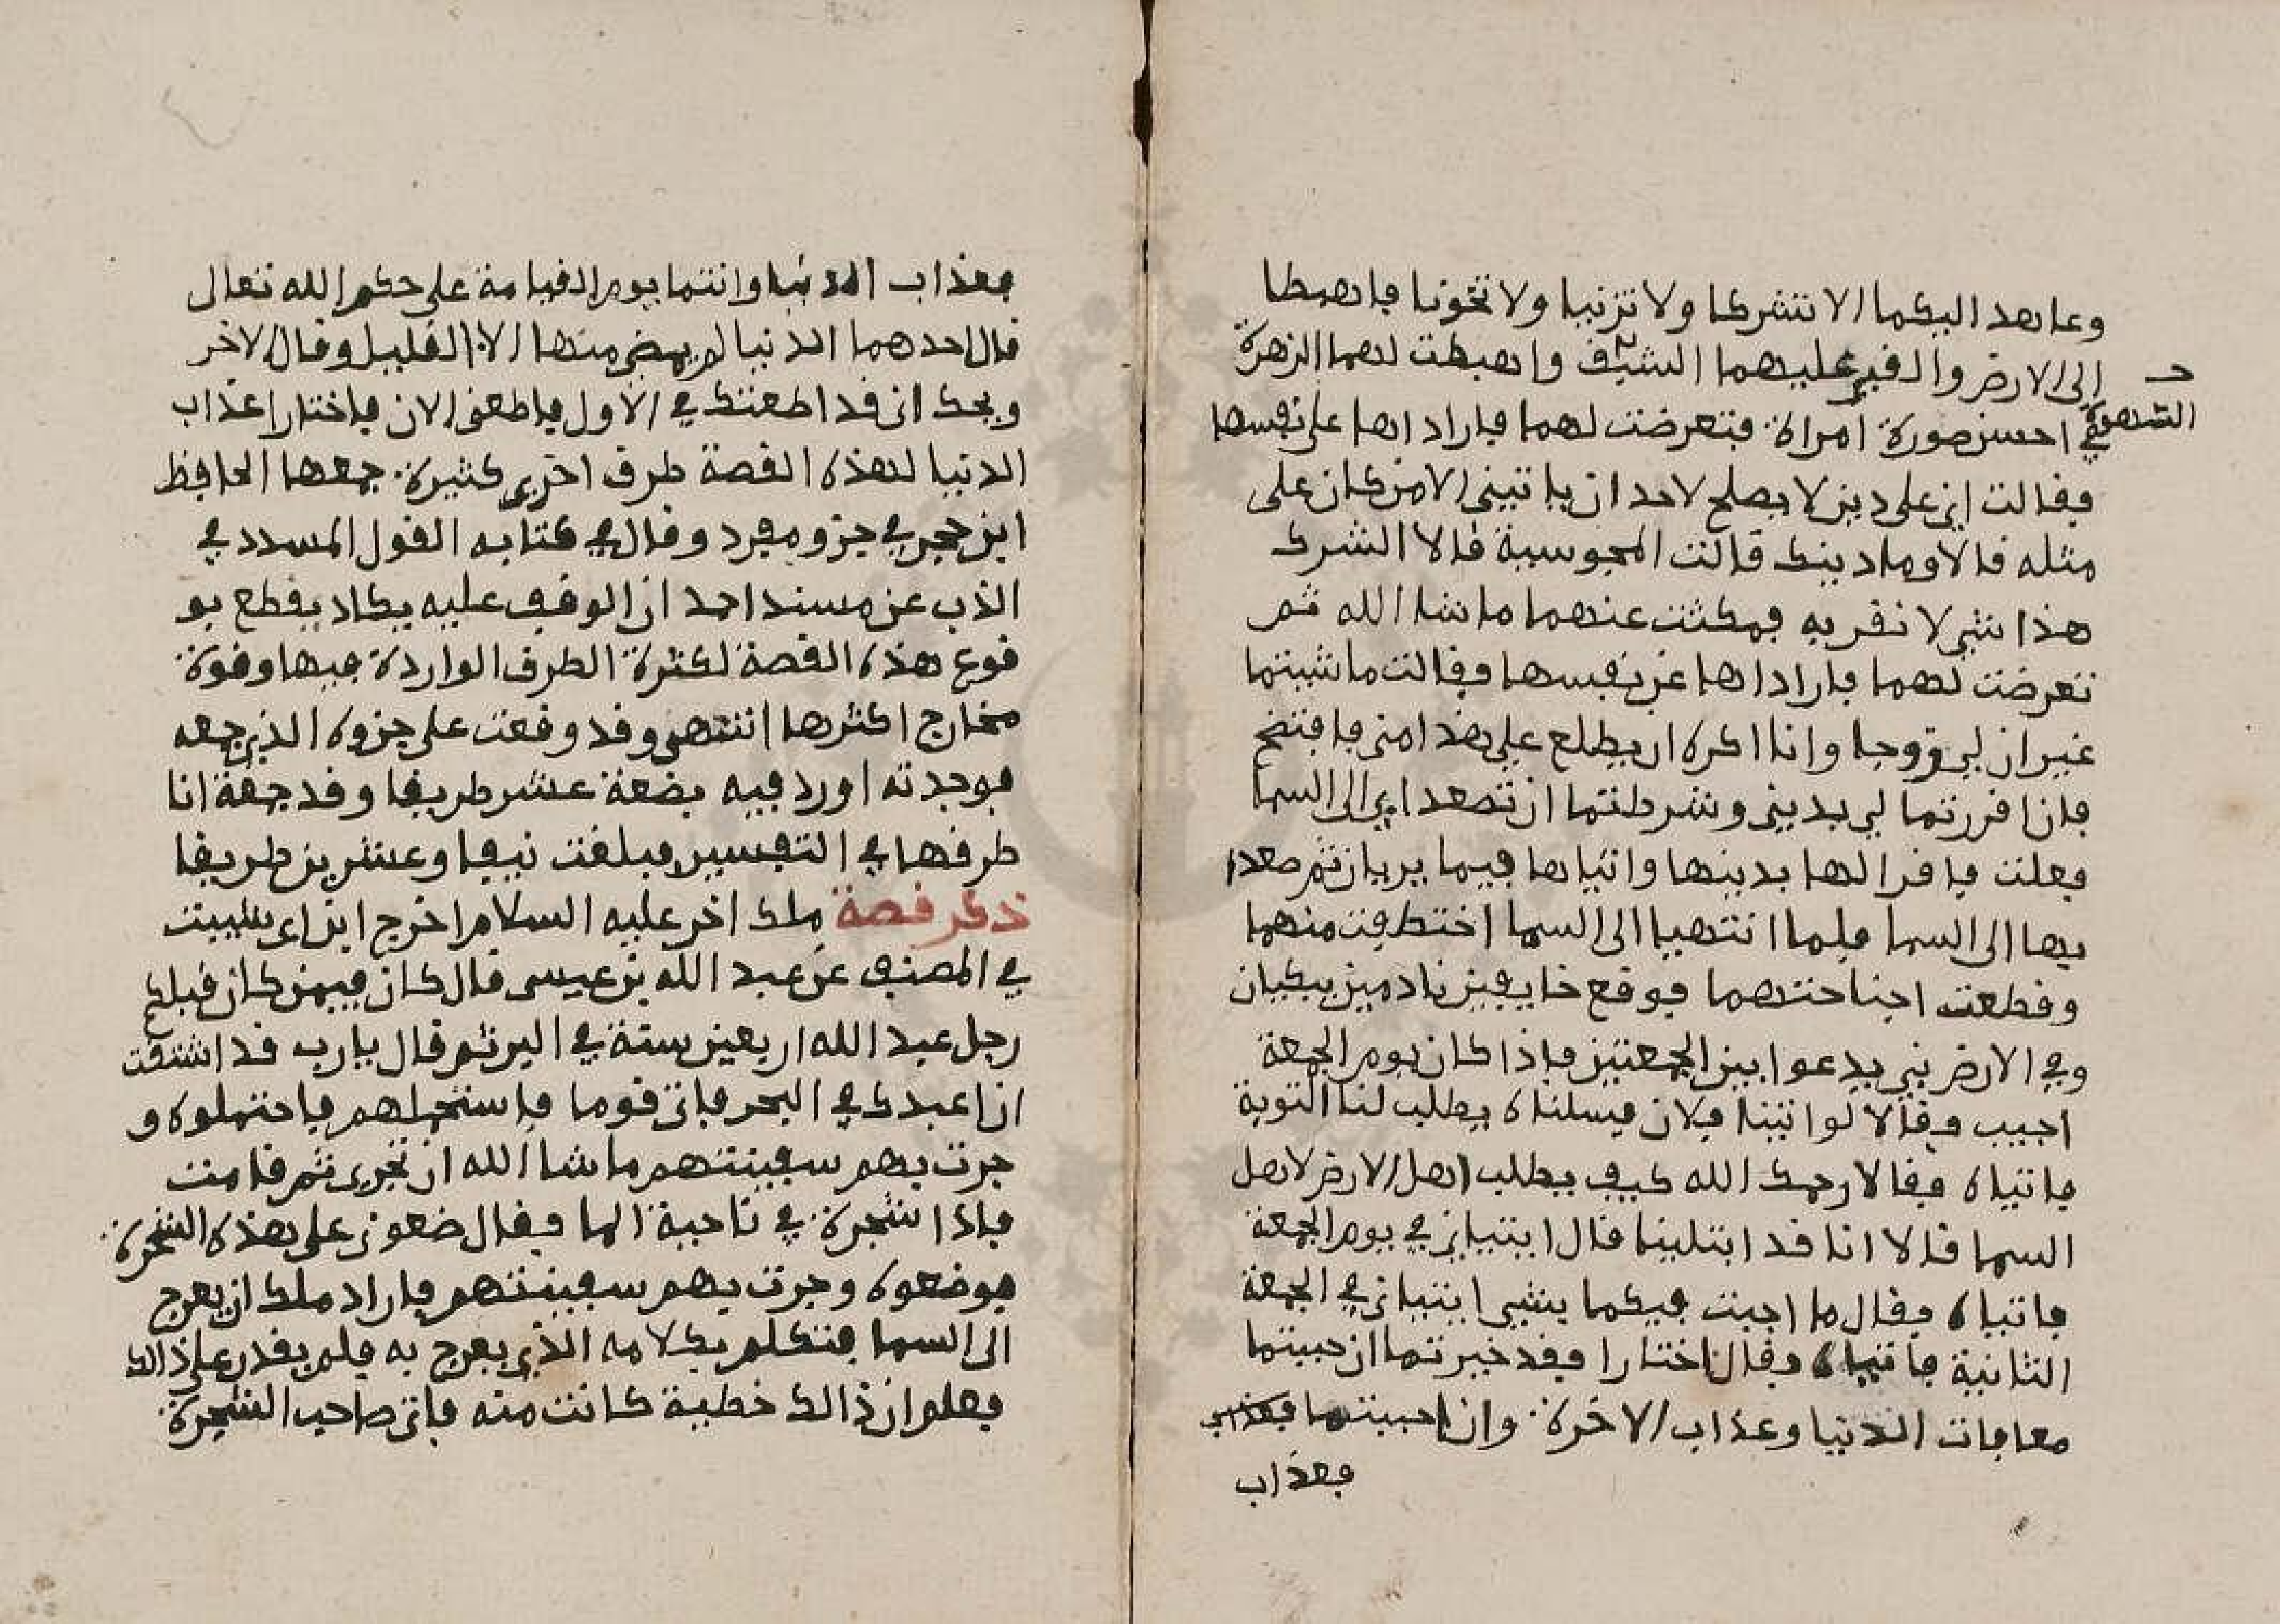 وعاهد اليكما الا تشركا ولا تزنيا ولا تخونا فاهبطا
الى الارض والقي عليهما الشبق واهبطت لهما الزهرة
الشهوة
في احسن صورة امراة فتعرضت لهما فاراداها على نفسها
فقالت اني على دين لا يصلح لاحد ان ياتيني الا من كان على
مثله قالا وما دينك قالت المجوسية قالا الشرك
هذا شي لا نقربه فمكثت عنهما ما شا الله ثم
تعرضت لهما فاراداها عن نفسها فقالت ما شيتما
غير ان لي زوجا وانا اكره ان يطلع على هذا مني فافتضح
فان اقررتما لي بديني وشرطتما ان تصعدا بي الى السما
فعلت فاقرا لها بدينها واتياها فيما يريان ثم صعدا
بها الى السما فلما انتهيا الى السما اختطفت منهما
وقطعت اجنحتهما فوقع خايفين نادمين يبكيان
وفي الارض نبي يدعوا بين الجمعتين فاذا كان يوم الجمعة
اجيب فقالا لو اتينا فلان فسلناه يطلب لنا التوبة
فاتياه فقالا رحمك الله كيف يطلب اهل الارض لاهل
السما قالا انا قد ابتلينا قال ايتياني في يوم الجمعة
فاتياه فقال ما اجبت فيكما بشي ايتياني في الجمعة
الثانية فاتياه فقال اختارا فقد خيرتما ان حبيتما
معافات الدنيا وعذاب الاخرة وان احببتما فعذاب
فعذاب
فعذاب الدنيا وانتما يوم القيامة على حكم الله تعالى
قال احدهما الدنيا لم يمض منها الا القليل وقال الاخر
ويحك اني قد اطعتك في الاول فاطعني الان فاختارا عذاب
الدنيا لهذه القصة طرق اخرى كثيرة جمعها الحافظ
ابن حجر في جزو مفرد وقال في كتابه القول المسدد في
الذب عن مسند احمد ان الوقف عليه يكاد يقطع بو
قوع هذه القصة لكثرة الطرق الواردة فيها وقوة
مخارج اكثرها انتهى وقد وقعت على جزوه الذي جمعه
فوجدته اورد فيه بضعة عشر طريقا وقد جمعة انا
طرقها في التفسير فبلغت نيفا وعشرين طريقا
ذكر قصة ملك اخر عليه السلام اخرج ابن ابي شيبت
في المصنف عن عبد الله بن عيسى قال كان فيمن كان قبلكم
رجل عبد الله اربعين سنة في البر ثم قال يا رب قد اشتقت
ان اعبدك في البحر فاتى قوما فاستحملهم فاحتملوه و
جرت بهم سفينتهم ما شا الله ان تجرى ثم قامت
فاذا شجرة في ناحية الما فقال ضعوني على هذه الشجرة
فوضعوه وجرت بهم سفينتهم فاراد ملك ان يعرج
الى السما فتكلم بكلامه الذي يعرج به فلم يقدر على ذالك
فعلم ان ذالك خطية كانت منه فاتى صاحب الشجرة